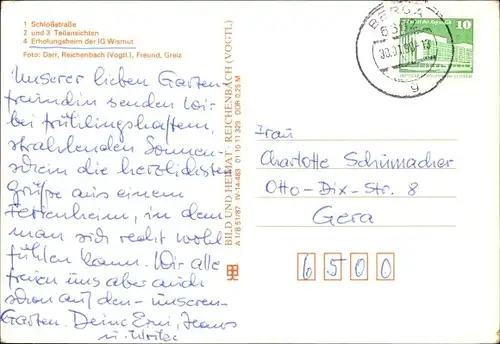 1 Schloßstraße
2 und 3 Teilansichten
4 Erholungsheim der IG Wismut
Foto: Darr, Reichenbach (Vogtl.), Freund, Greiz
Unserer lieben Garten-
freundin senden wir
bei frühlingshaftem,
strahlenden Sonnen-
schein die herzlichsten
Grüße aus einem
Ferienheim, in dem
man sich recht wohl
fühlen kann. Wir alle
freuen uns aber auch
schon auf den - unseren-
Garten. Deine Erni, Hans
u.
BILD UND HEIMAT REICHENBACH (VOGTL)
A 1/B 51/87 IV-14-483 01 10 11 329 DDR 0,25 M
BERGA
10
Frau
Charlotte Schumacher
Otto-Dix-Str. 8
Gera
6500